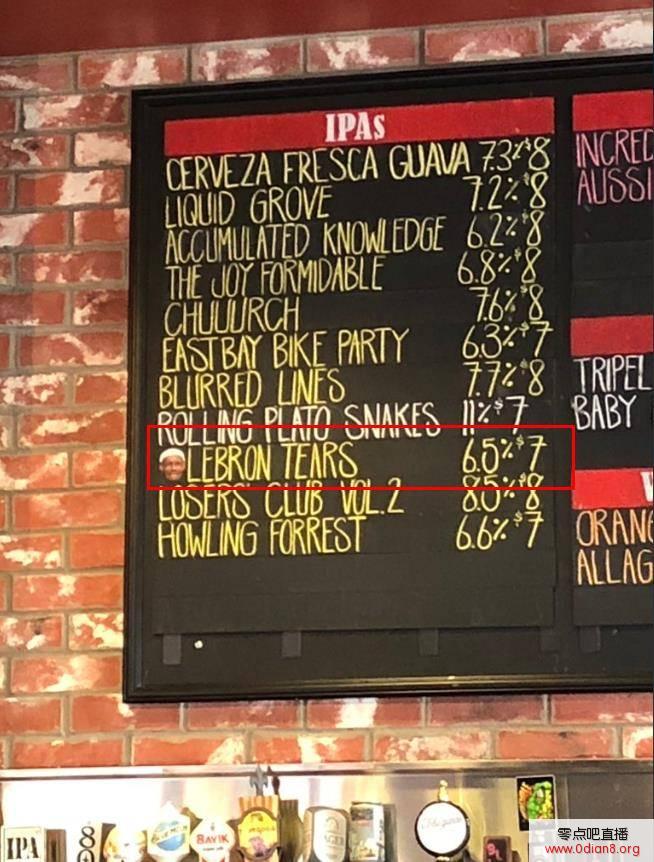 IPAs
CERVEZA FRESCA GUAVA 7.3% $8
LIQUID GROVE 7.2% $8
ACCUMULATED KNOWLEDGE 6.2% $8
THE JOY FORMIDABLE 6.8% $8
CHUUURCH 7.6% $8
EAST BAY BIKE PARTY 6.3% $7
BLURRED LINES 7.7% $8
ROLLING PLATO SNAKES 11% $7
LEBRON TEARS 6.5% $7
LOSERS' CLUB VOL.2 8.5% $8
HOWLING FORREST 6.6% $7
INCRED
AUSSI
TRIPEL
BABY
ORAN
ALLAG
IPA
BLUE MOON
BAVIK
LAGER
零点吧直播
www.0dian8.org